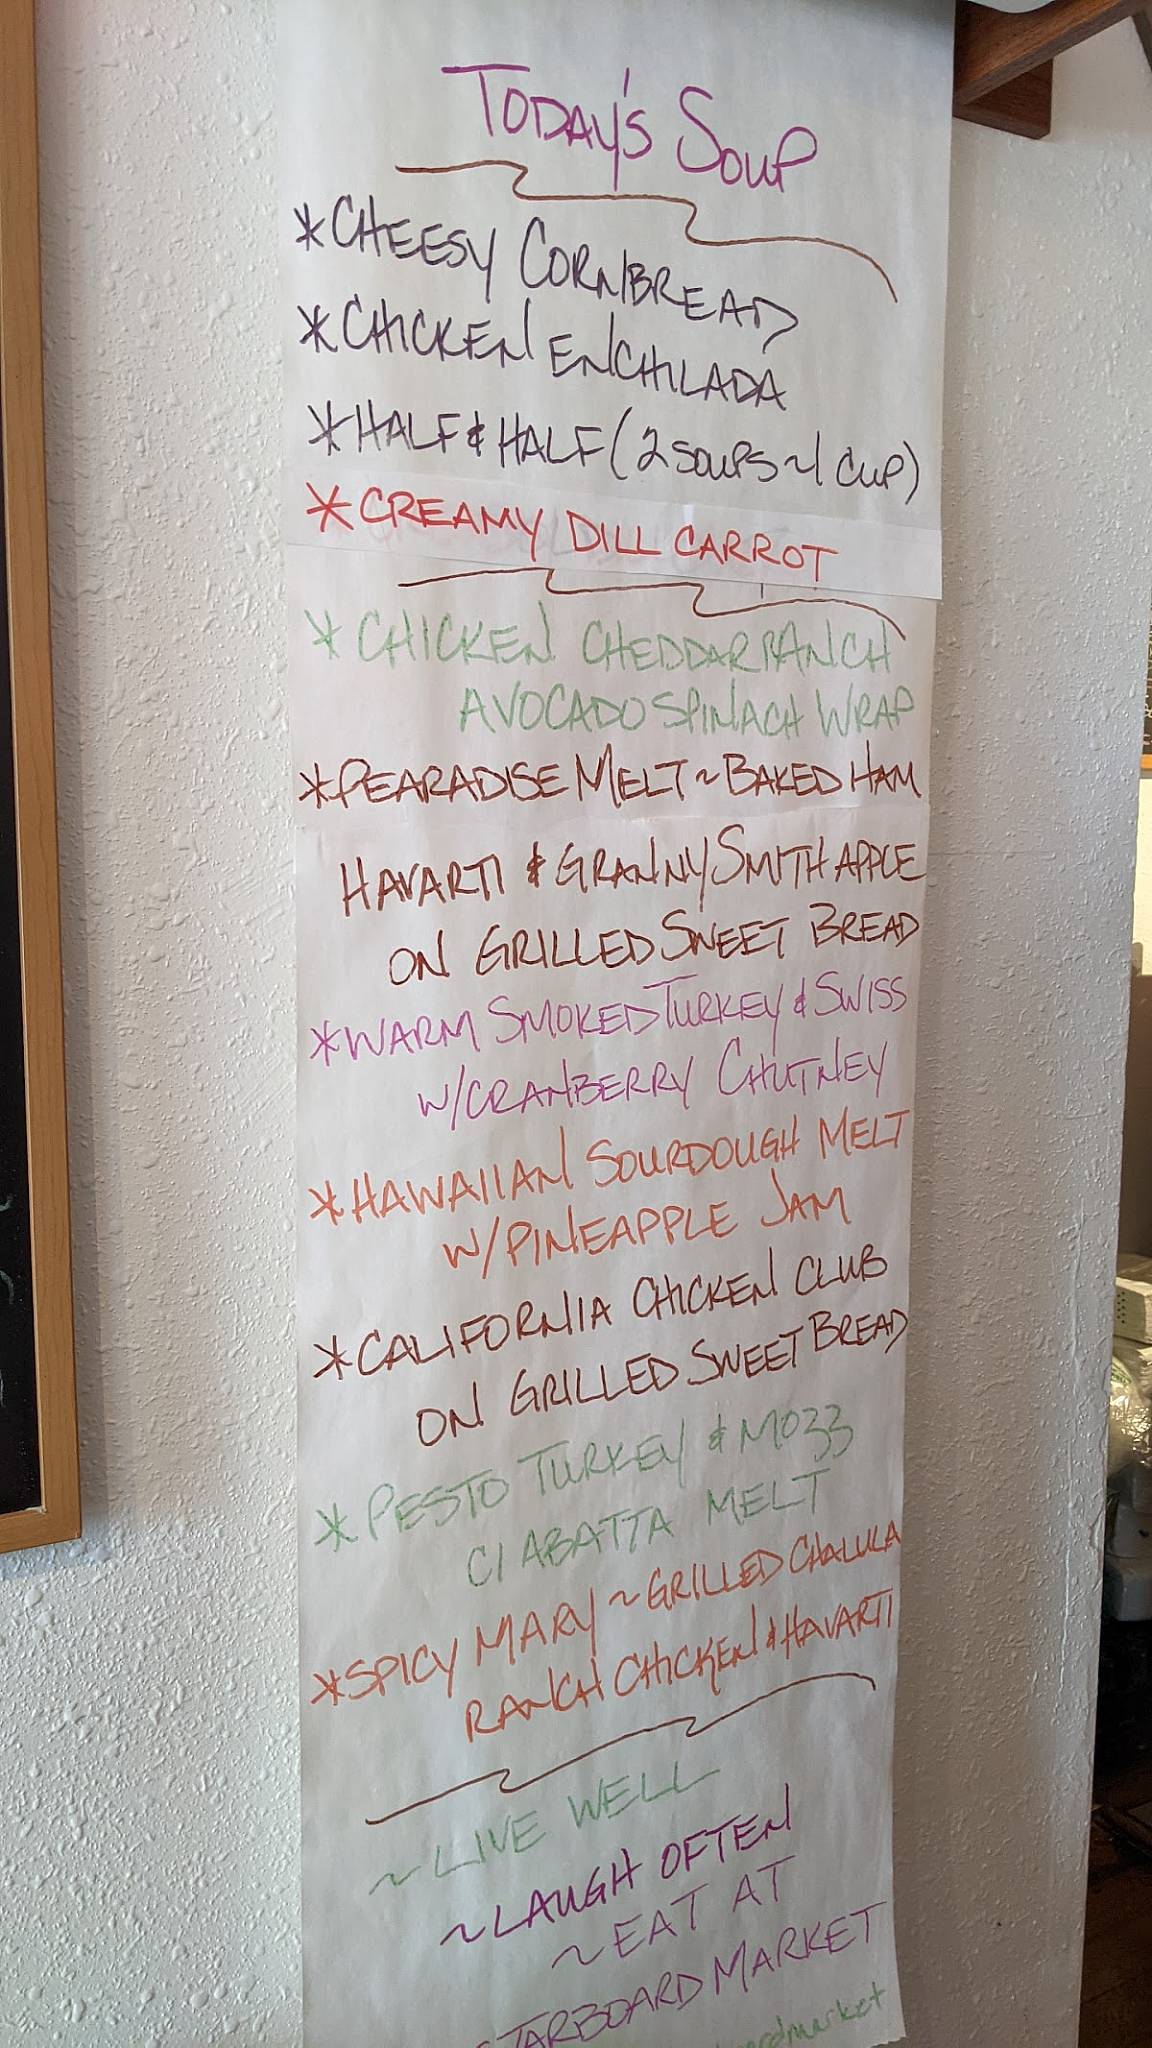 TODAY'S SOUP
*CHEESY CORNBREAD
*CHICKEN ENCHILADA
*HALF & HALF (2 SOUPS ~1 CUP)
*CREAMY DILL CARROT
*CHICKEN CHEDDAR RANCH
AVOCADO SPINACH WRAP
*PEARADISE MELT ~ BAKED HAM
HAVARTI & GRANNY SMITH APPLE
ON GRILLED SWEET BREAD
*WARM SMOKED TURKEY & SWISS
W/CRANBERRY CHUTNEY
*HAWAIIAN SOURDOUGH MELT
W/PINEAPPLE JAM
*CALIFORNIA CHICKEN CLUB
ON GRILLED SWEET BREAD
*PESTO TURKEY & MOZZ
CIABATTA MELT
*SPICY MARY ~ GRILLED CHALULA
RANCH CHICKEN & HAVARTI
~LIVE WELL
~LAUGH OFTEN
~EAT AT
STARBOARD MARKET